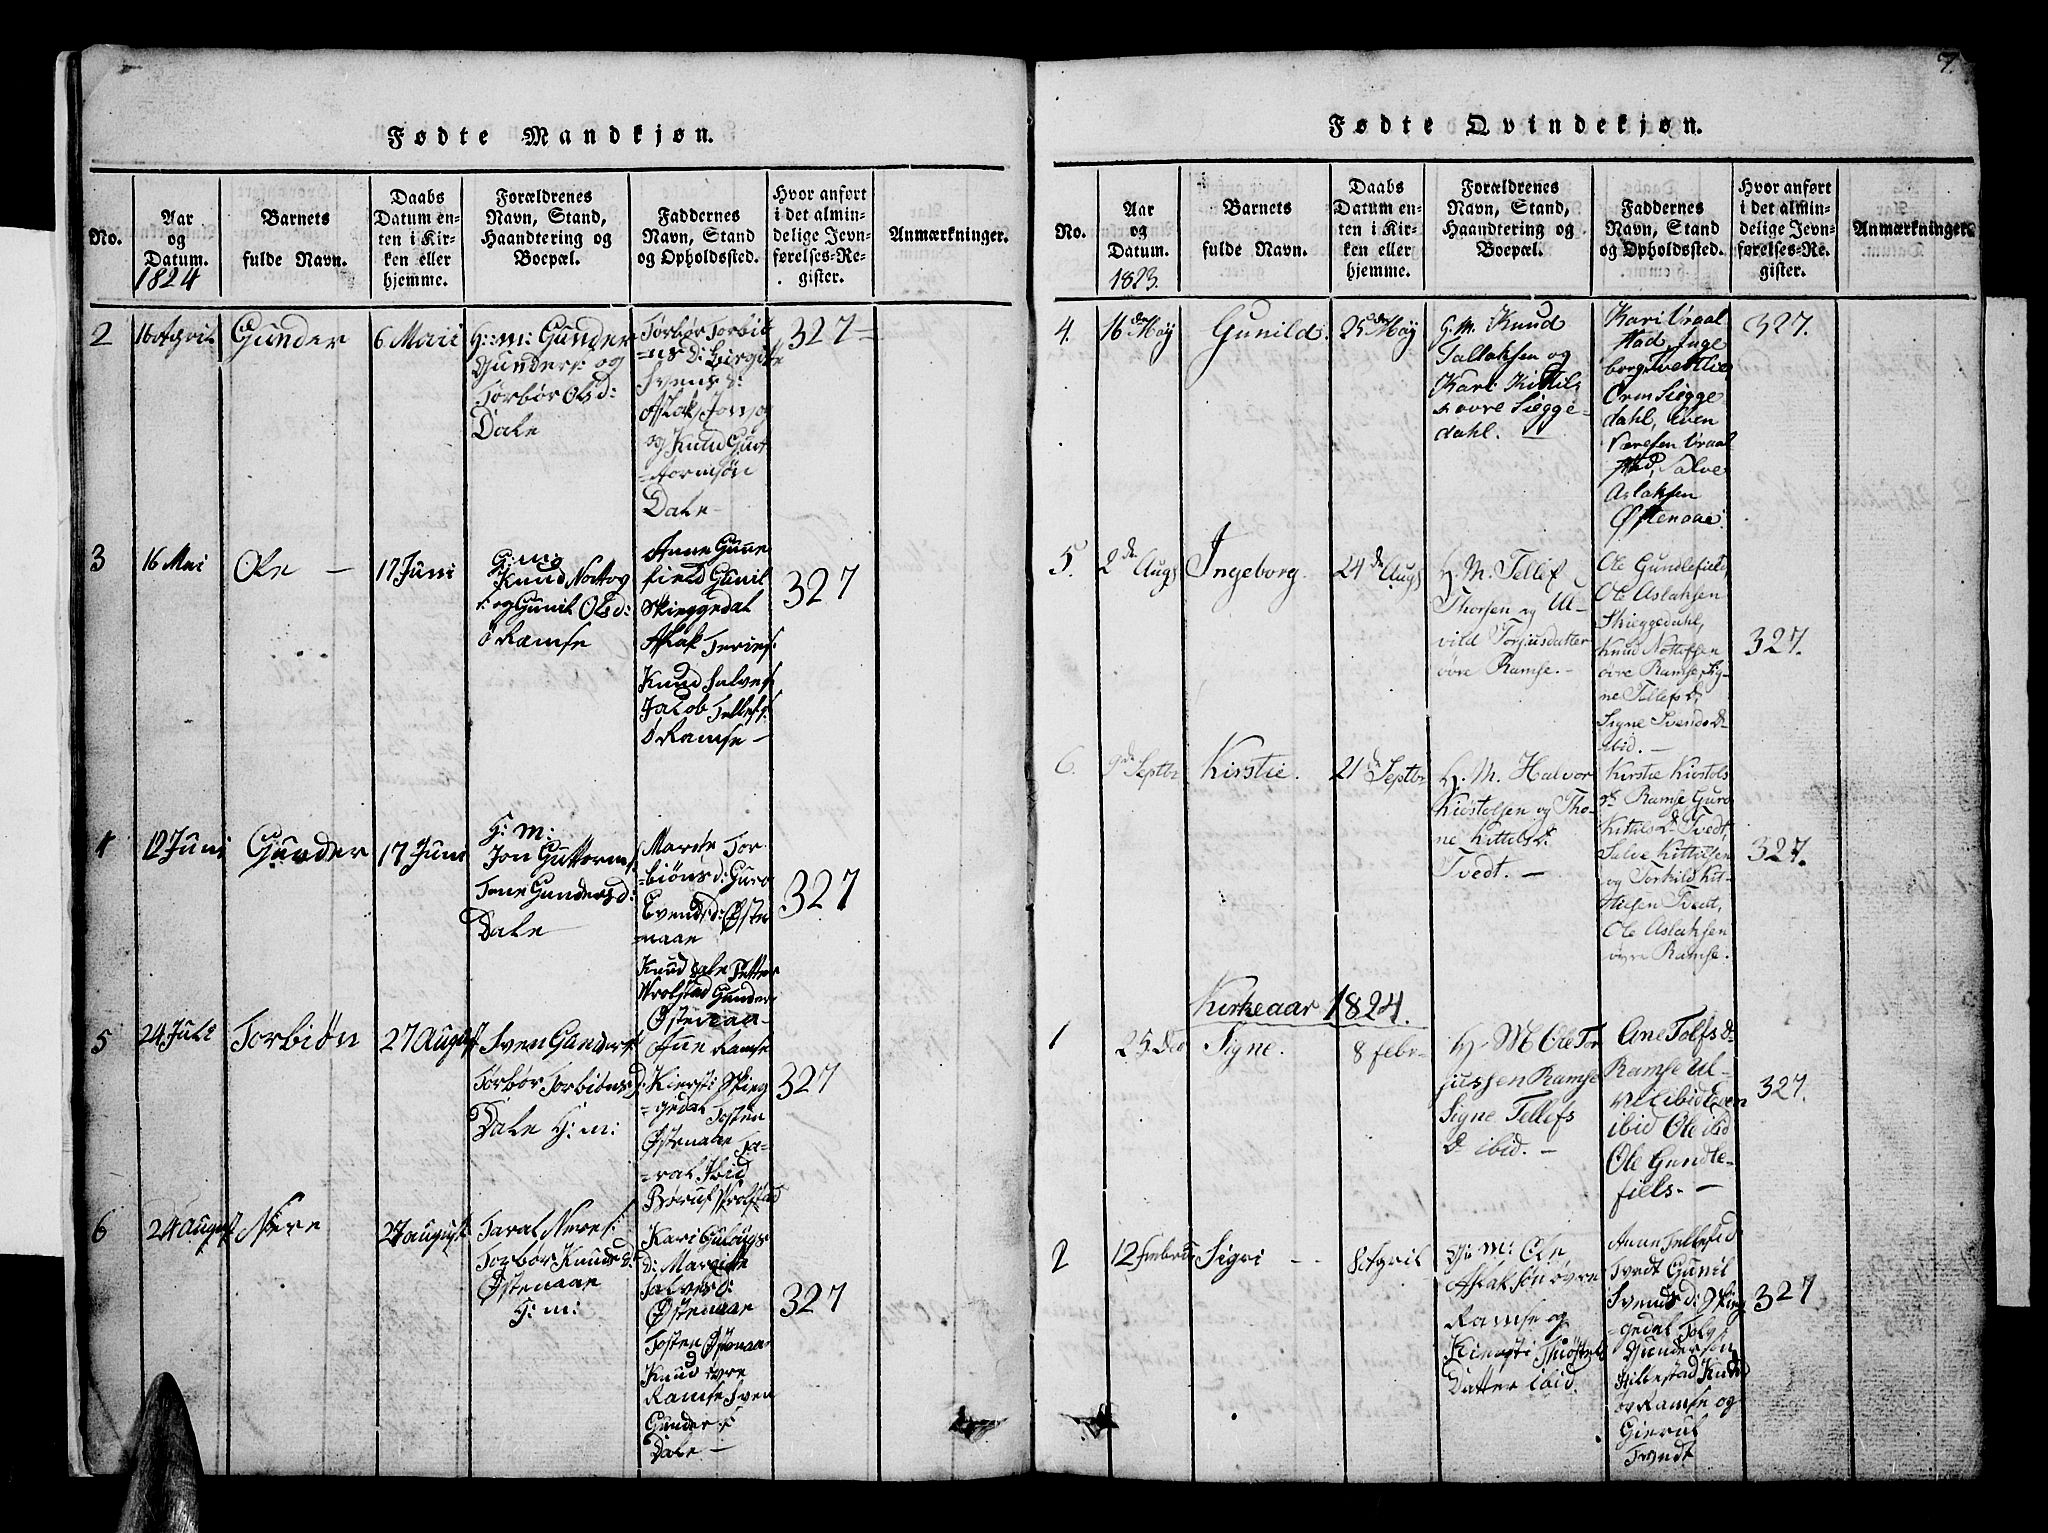 Fødte Mandkjøn.
No.
Aar
og
Datum.
1824
Barnets
fulde Navn.
Daabs
Datum en-
ten i Kir-
ken eller
hjemme.
Forældrenes
Navn, Stand,
Haandtering og
Boepæl.
Faddernes
Navn, Stand
og Opholdssted.
Hvor anført
i det almin-
delige Jevn-
førelses-Re-
gister.
Anmærkninger.
2
16 April
Gunder
6 Maii
H: m: Gunder
Gunders: og
Torbør Olsd:
Dale
Torbør Torbiø
ns d: Birgitte
Svens d:
Aslak Jons og
og Knud Gut
=tormsøn
Dale
327
3
16 Mai
Ole
17 Juni
H: m:
Knud Nottog
s: og Gunil Olsd:
Ø Ramse
Anne Gune
field Gunil
Skieggedal
Aslak Teries:
Knud Salves
Jacob Tellefs:
Ø Ramse
327
4
12 Juni
Gunder
17 Juni
H: m:
Jon Guttorms
Tone Gundersd:
Dale
Marte Tor
=biønsd: Guro
Evendsd: Østen
=naae
Knud Dale Petter
Wrolstad Gunder
Østenaaa
327
5
24 Juli
Torbiøn
27 August
Sven Gunders
Torbor Torbiønsd
Dale H: m:
Aue Ramse
Kiersti Skieg
=gedal Tosten
Østenaae Ta-
=ral Ibid
Børuf Wrolstad
327
6
24 August
Nere
27 august
Taral Neres:
Torbør Knudsd:
Østenaae
H: m:
Kari Gulougs
d: Margitte
Salvesd:
Østenaae
Tosten Østenaae
Knud øvre
Ramse Sven
Gunders
Dale
327
7.
Fødte Qvindekjøn.
No.
Aar
og
Datum.
1823.
Barnets
fulde Navn.
Daabs
Datum en-
ten i Kir-
ken eller
hjemme.
Forældrenes
Navn, Stand,
Haandtering og
Boepæl.
Faddernes
Navn, Stand
og Opholdssted.
Hvor anført
i det almin-
delige Jevn-
førelses-Re-
gister.
Anmærkninger.
4.
16de May
Gunild.
25de May
H. M. Knud
Tallaksen og
Kari Kittils
øvre Siegge-
dahl.
Kari Uraal
stad, Inge
borg Vestlie,
Orm Siegge
dahl, Even
Uraal
stad, Salve
Aslaksen
Østenaae
327.
5.
2de Augs
Ingeborg.
24de Augs
H. M. Tellef
Thorsen og Ul-
vild Torjusdatter
øvre Ramse.
Ole Gundlefield,
Ole Aslaksen
Skieggedahl,
Knud Nottofsen
øvre Ramse, Sig-
ne Tellefs D.
Signe Svends D
ibid.
327.
6.
9de Septbr
Kirstie.
21de Septbr
H. M. Halvor
Kiøstolsen og Tho-
ne Kittels D.
Tvedt.
Kirstie Kiøstols
D. Ramse Guro
Kittils D. Tvedt,
Salve Kittilsen
og Torkild Kit-
tilsen Tvedt,
Ole Aslaksen
øvre Ramse.
327.
Kirkeaar 1824.
1
25 Dec
Signe.
8 febr
H. M Ole Tor
jussen Ramse
Signe Tellefs
D. ibid.
Ane Tolfs D.
Ramse Ul-
vil ibid Even
ibid Ole ibid
Ole Gundle-
fiels.
327.
2
12
Sigri
8 April
H: m: Ole
Aslaksøn øvre
Ramse og
Kiersti Kiøstels
Datter ibid.
Anne Tellefsd
Tvedt Gunil
Svends d: Skieg
gedal Tolf
Gundersøn
Hillestad Knud
øv Ramse og
Gierul
Tvedt
327